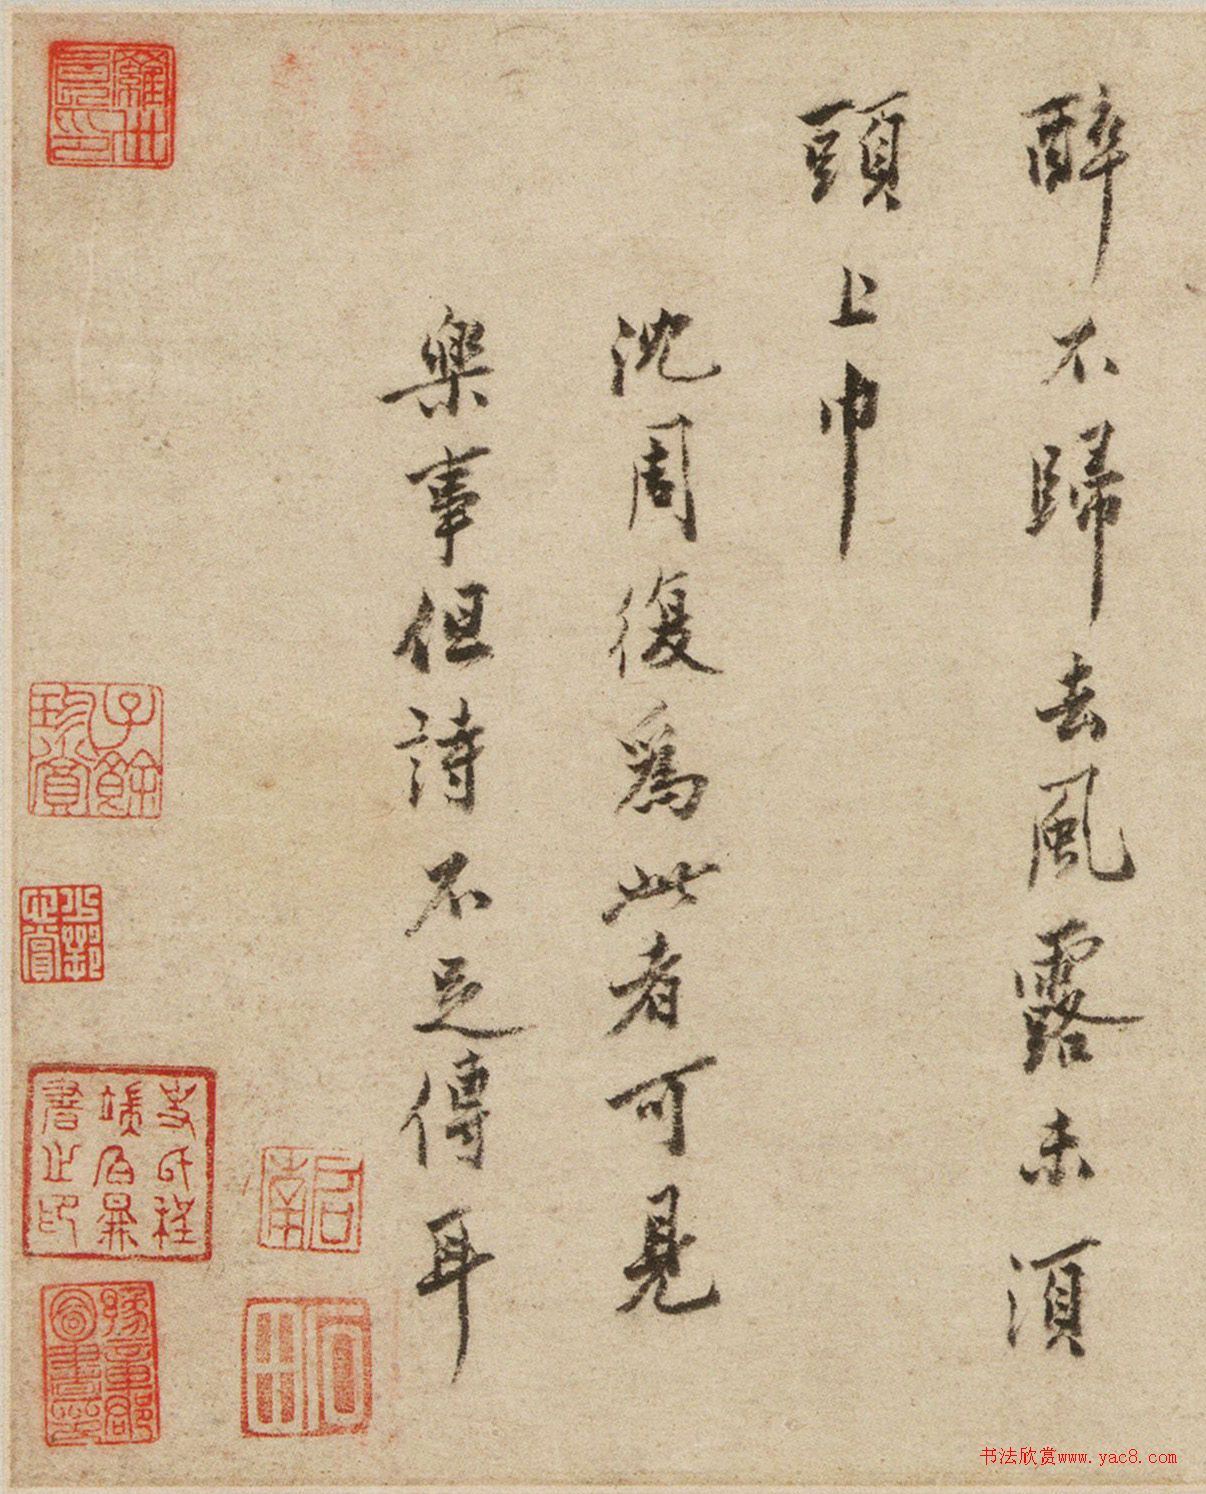 醉不歸去風露未須
頭上巾
沈周復為此者可見
樂事但詩不足傳耳
啟南
石田
子餘珎賞
書法欣赏www.yac8.com